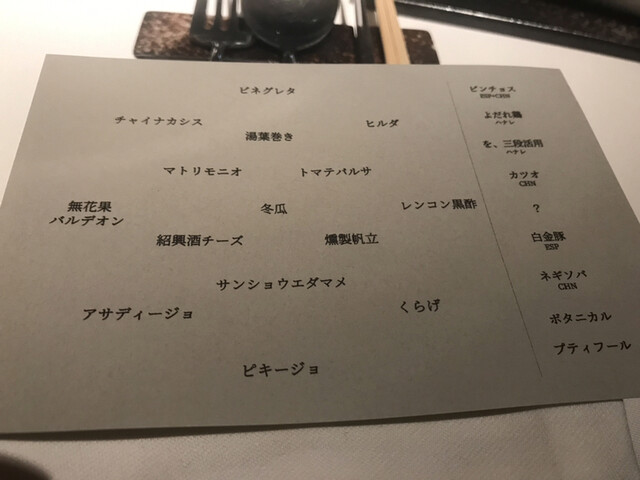 ビネグレタ
チャイナカシス
ヒルダ
湯葉巻き
マトリモニオ
トマテバルサ
無花果
バルデオン
冬瓜
レンコン黒酢
紹興酒チーズ
燻製帆立
サンショウエダマメ
アサディージョ
くらげ
ピキージョ
ピンチョス
ESP×CHN
よだれ鶏
ハナレ
を、三段活用
ハナレ
カツオ
CHN
?
白金豚
ESP
ネギソバ
CHN
ボタニカル
プティフール